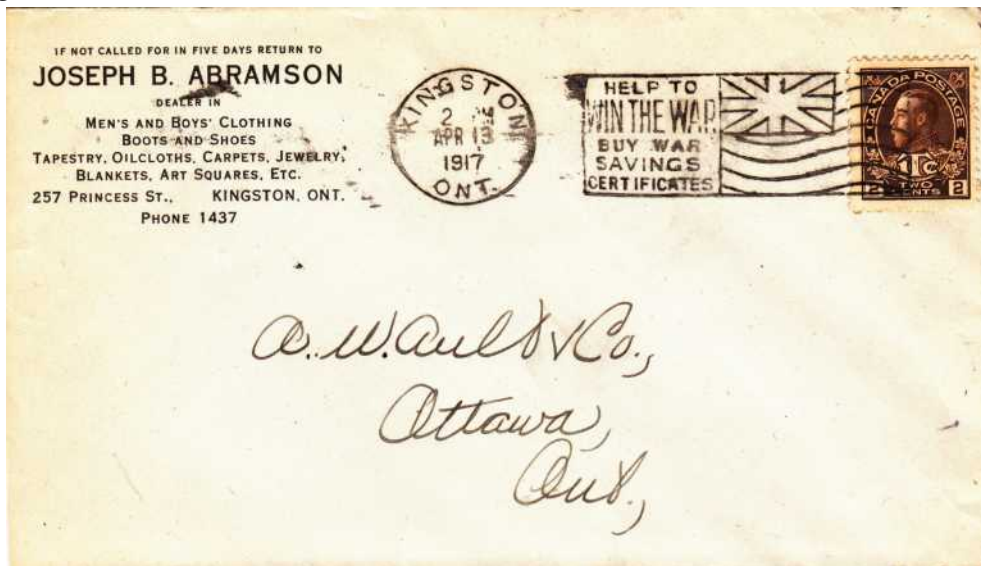 IF NOT CALLED FOR IN FIVE DAYS RETURN TO
JOSEPH B. ABRAMSON
DEALER IN
MEN'S AND BOYS' CLOTHING
BOOTS AND SHOES
TAPESTRY, OILCLOTHS, CARPETS, JEWELRY,
BLANKETS, ART SQUARES, ETC.
257 PRINCESS ST., KINGSTON, ONT.
PHONE 1437
KINGSTON
2 PM
APR 13
1917
ONT.
HELP TO
WIN THE WAR
BUY WAR
SAVINGS
CERTIFICATES
CANADA POSTAGE
1TC
2 TWO CENTS 2
A. W. Ault & Co.,
Ottawa,
Ont.,